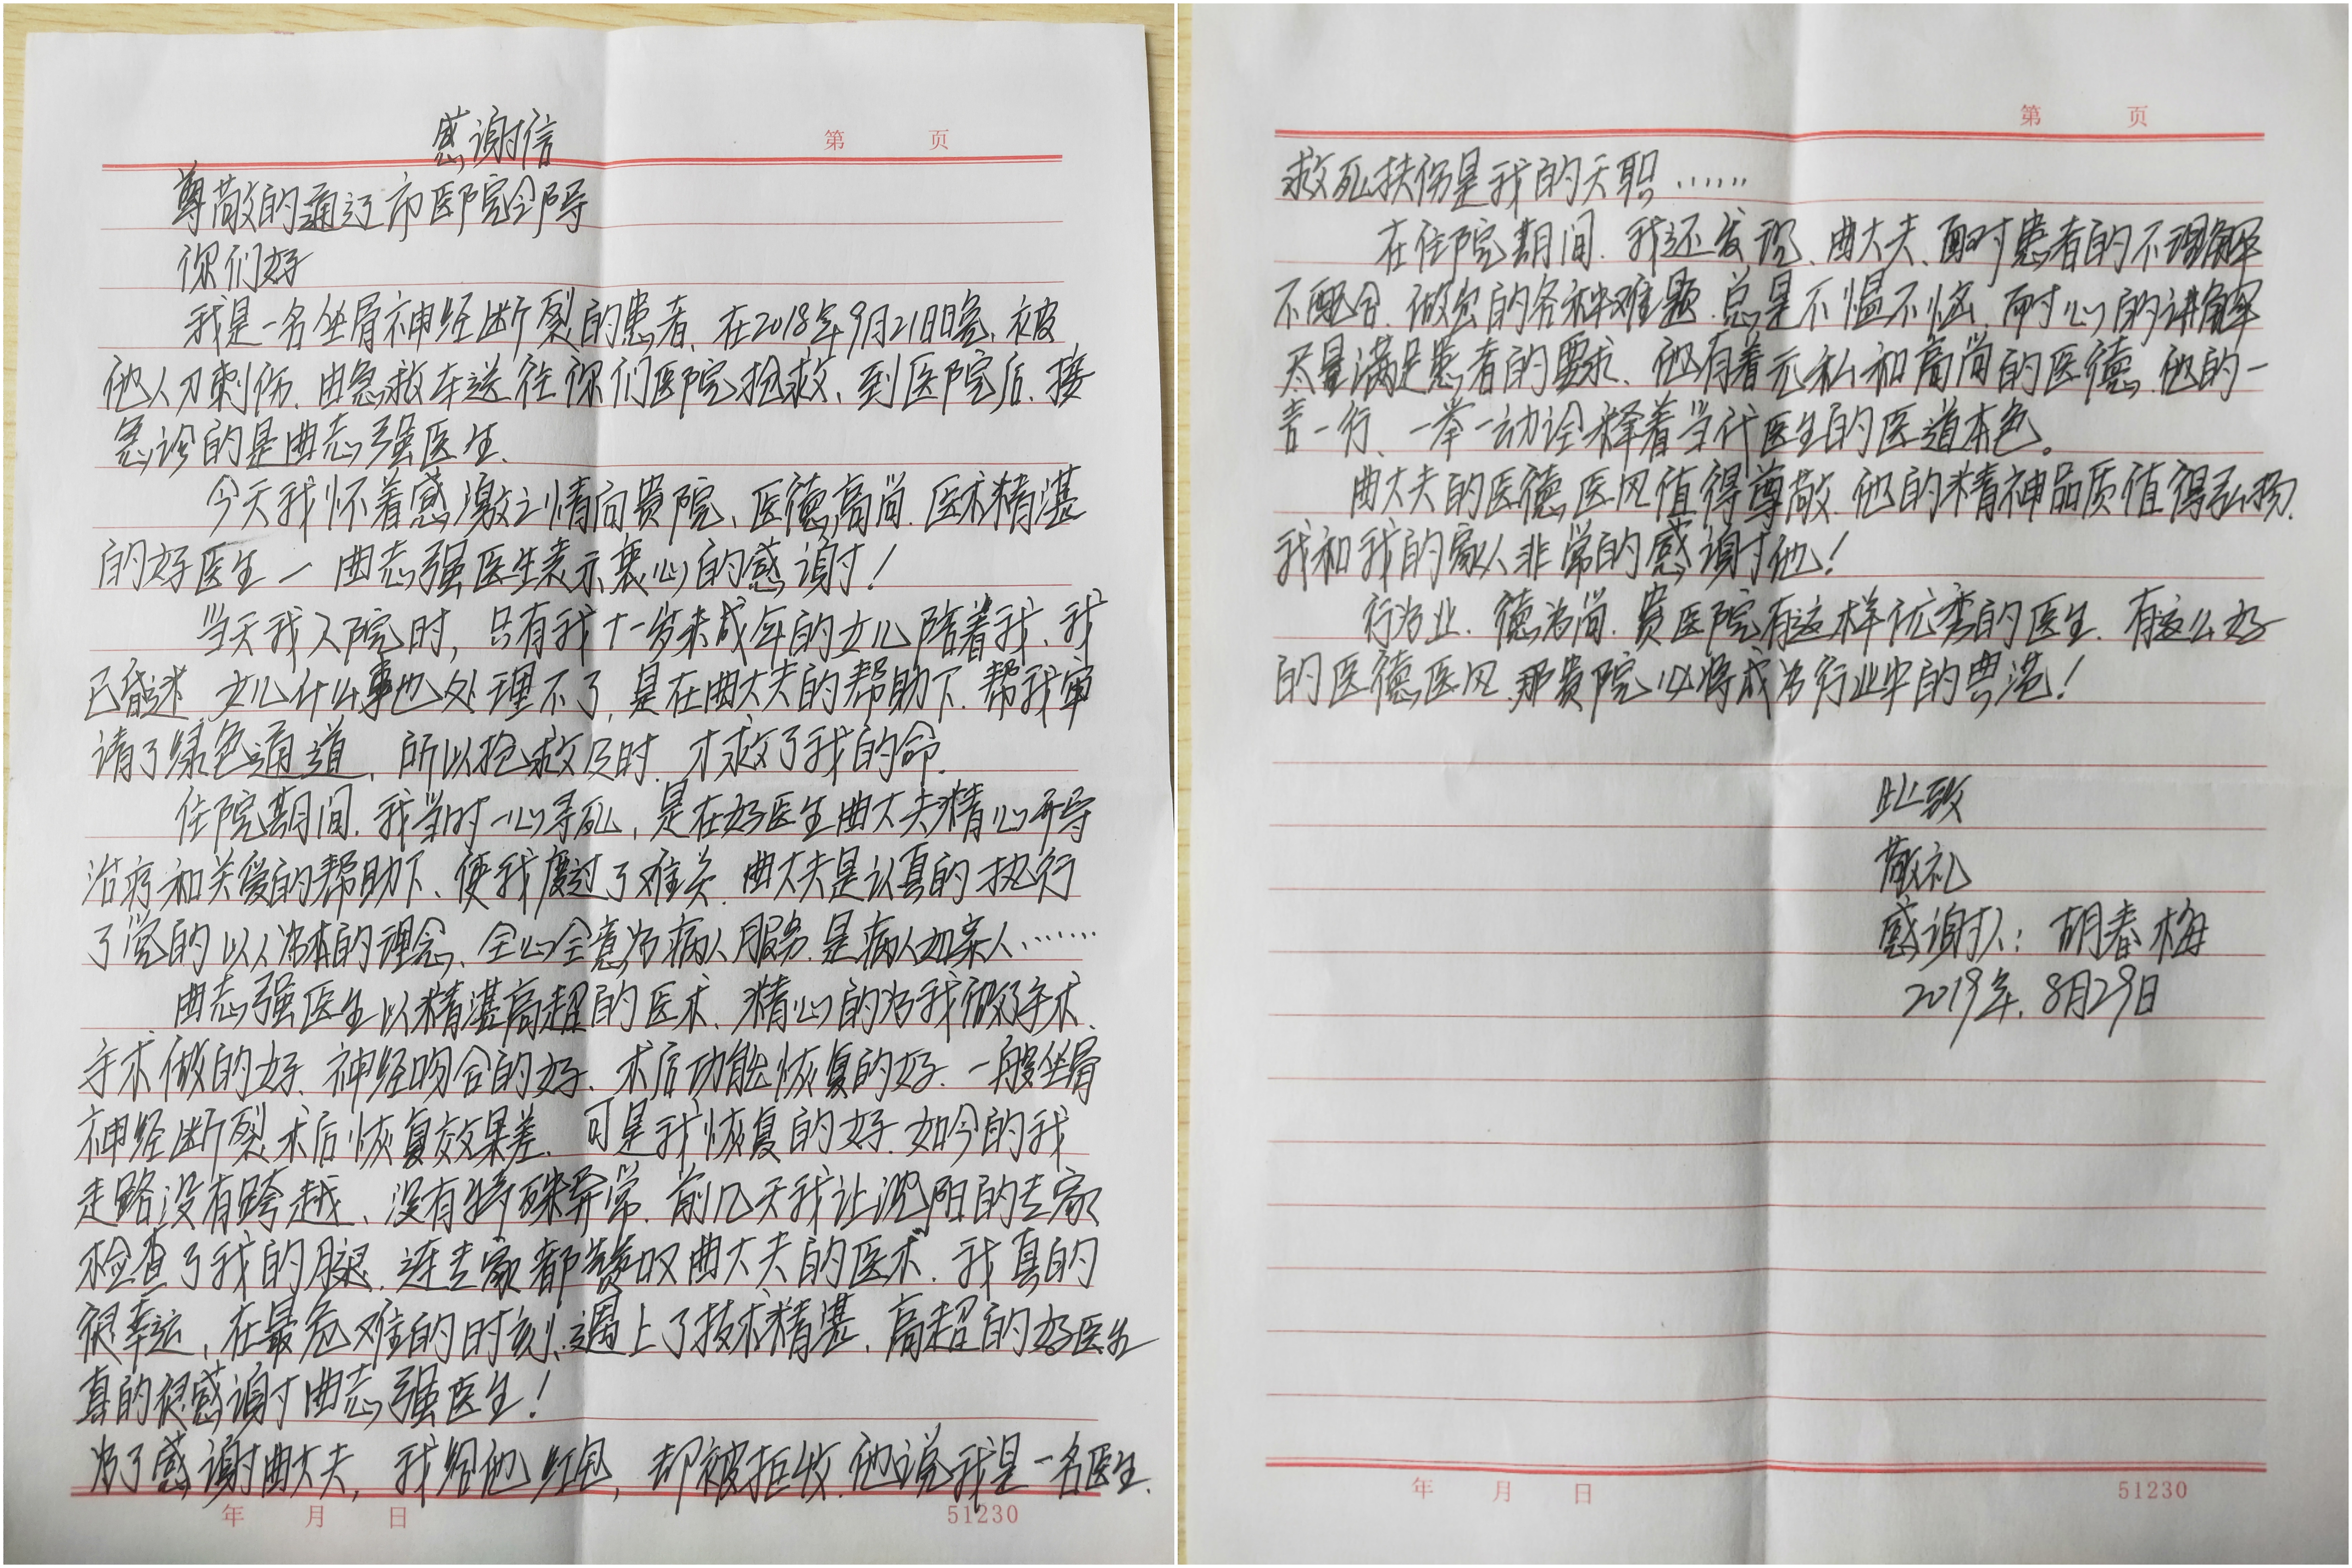 第 页
感谢信
尊敬的通辽市医院领导
你们好
我是一名坐骨神经断裂的患者、在2018年9月21日晚、被
他人刀刺伤、由急救车送往你们医院抢救、到医院后、接
急诊的是曲志强医生、
今天我怀着感激之情向贵院、医德高尚、医术精湛
的好医生一曲志强医生表示衷心的感谢！
当天我入院时，只有我十一岁未成年的女儿陪着我、我
已昏迷 女儿什么事也处理不了，是在曲大夫的帮助下、帮我审
请了绿色通道、所以抢救及时、才救了我的命、
住院期间、我当时一心寻死，是在好医生曲大夫精心开导
治疗和关爱的帮助下、使我度过了难关、曲大夫是认真的执行
了党的以人为本的理念、全心全意为病人服务、是病人如亲人……
曲志强医生以精湛高超的医术、精心的为我做了手术、
手术做的好、神经吻合的好、术后功能恢复的好、一般坐骨
神经断裂术后恢复效果差、可是我恢复的好、如今的我
走路没有跨越、没有特殊异常、前几天我让沈阳的专家
检查了我的腿、连专家都赞叹曲大夫的医术、我真的
很幸运，在最危难的时刻、遇上了技术精湛、高超的好医生
真的很感谢曲志强医生！
为了感谢曲大夫，我给他红包，却被拒收、他说我是一名医生、
年 月 日 51230
第 页
救死扶伤是我的天职……
在住院期间、我还发现、曲大夫、面对患者的不理解
不配合、做出的各种难题、总是不愠不恼、耐心的讲解
尽量满足患者的要求、他有着无私和高尚的医德、他的一
言一行、一举一动诠释着当代医生的医道本色。
曲大夫的医德医风值得尊敬、他的精神品质值得弘扬、
我和我的家人非常的感谢他！
行为业、德为尚、贵医院有这样优秀的医生、有这么好
的医德医风、那贵院必将成为行业中的典范！
此致
敬礼
感谢人：胡春梅
2019年、8月29日
年 月 日 51230